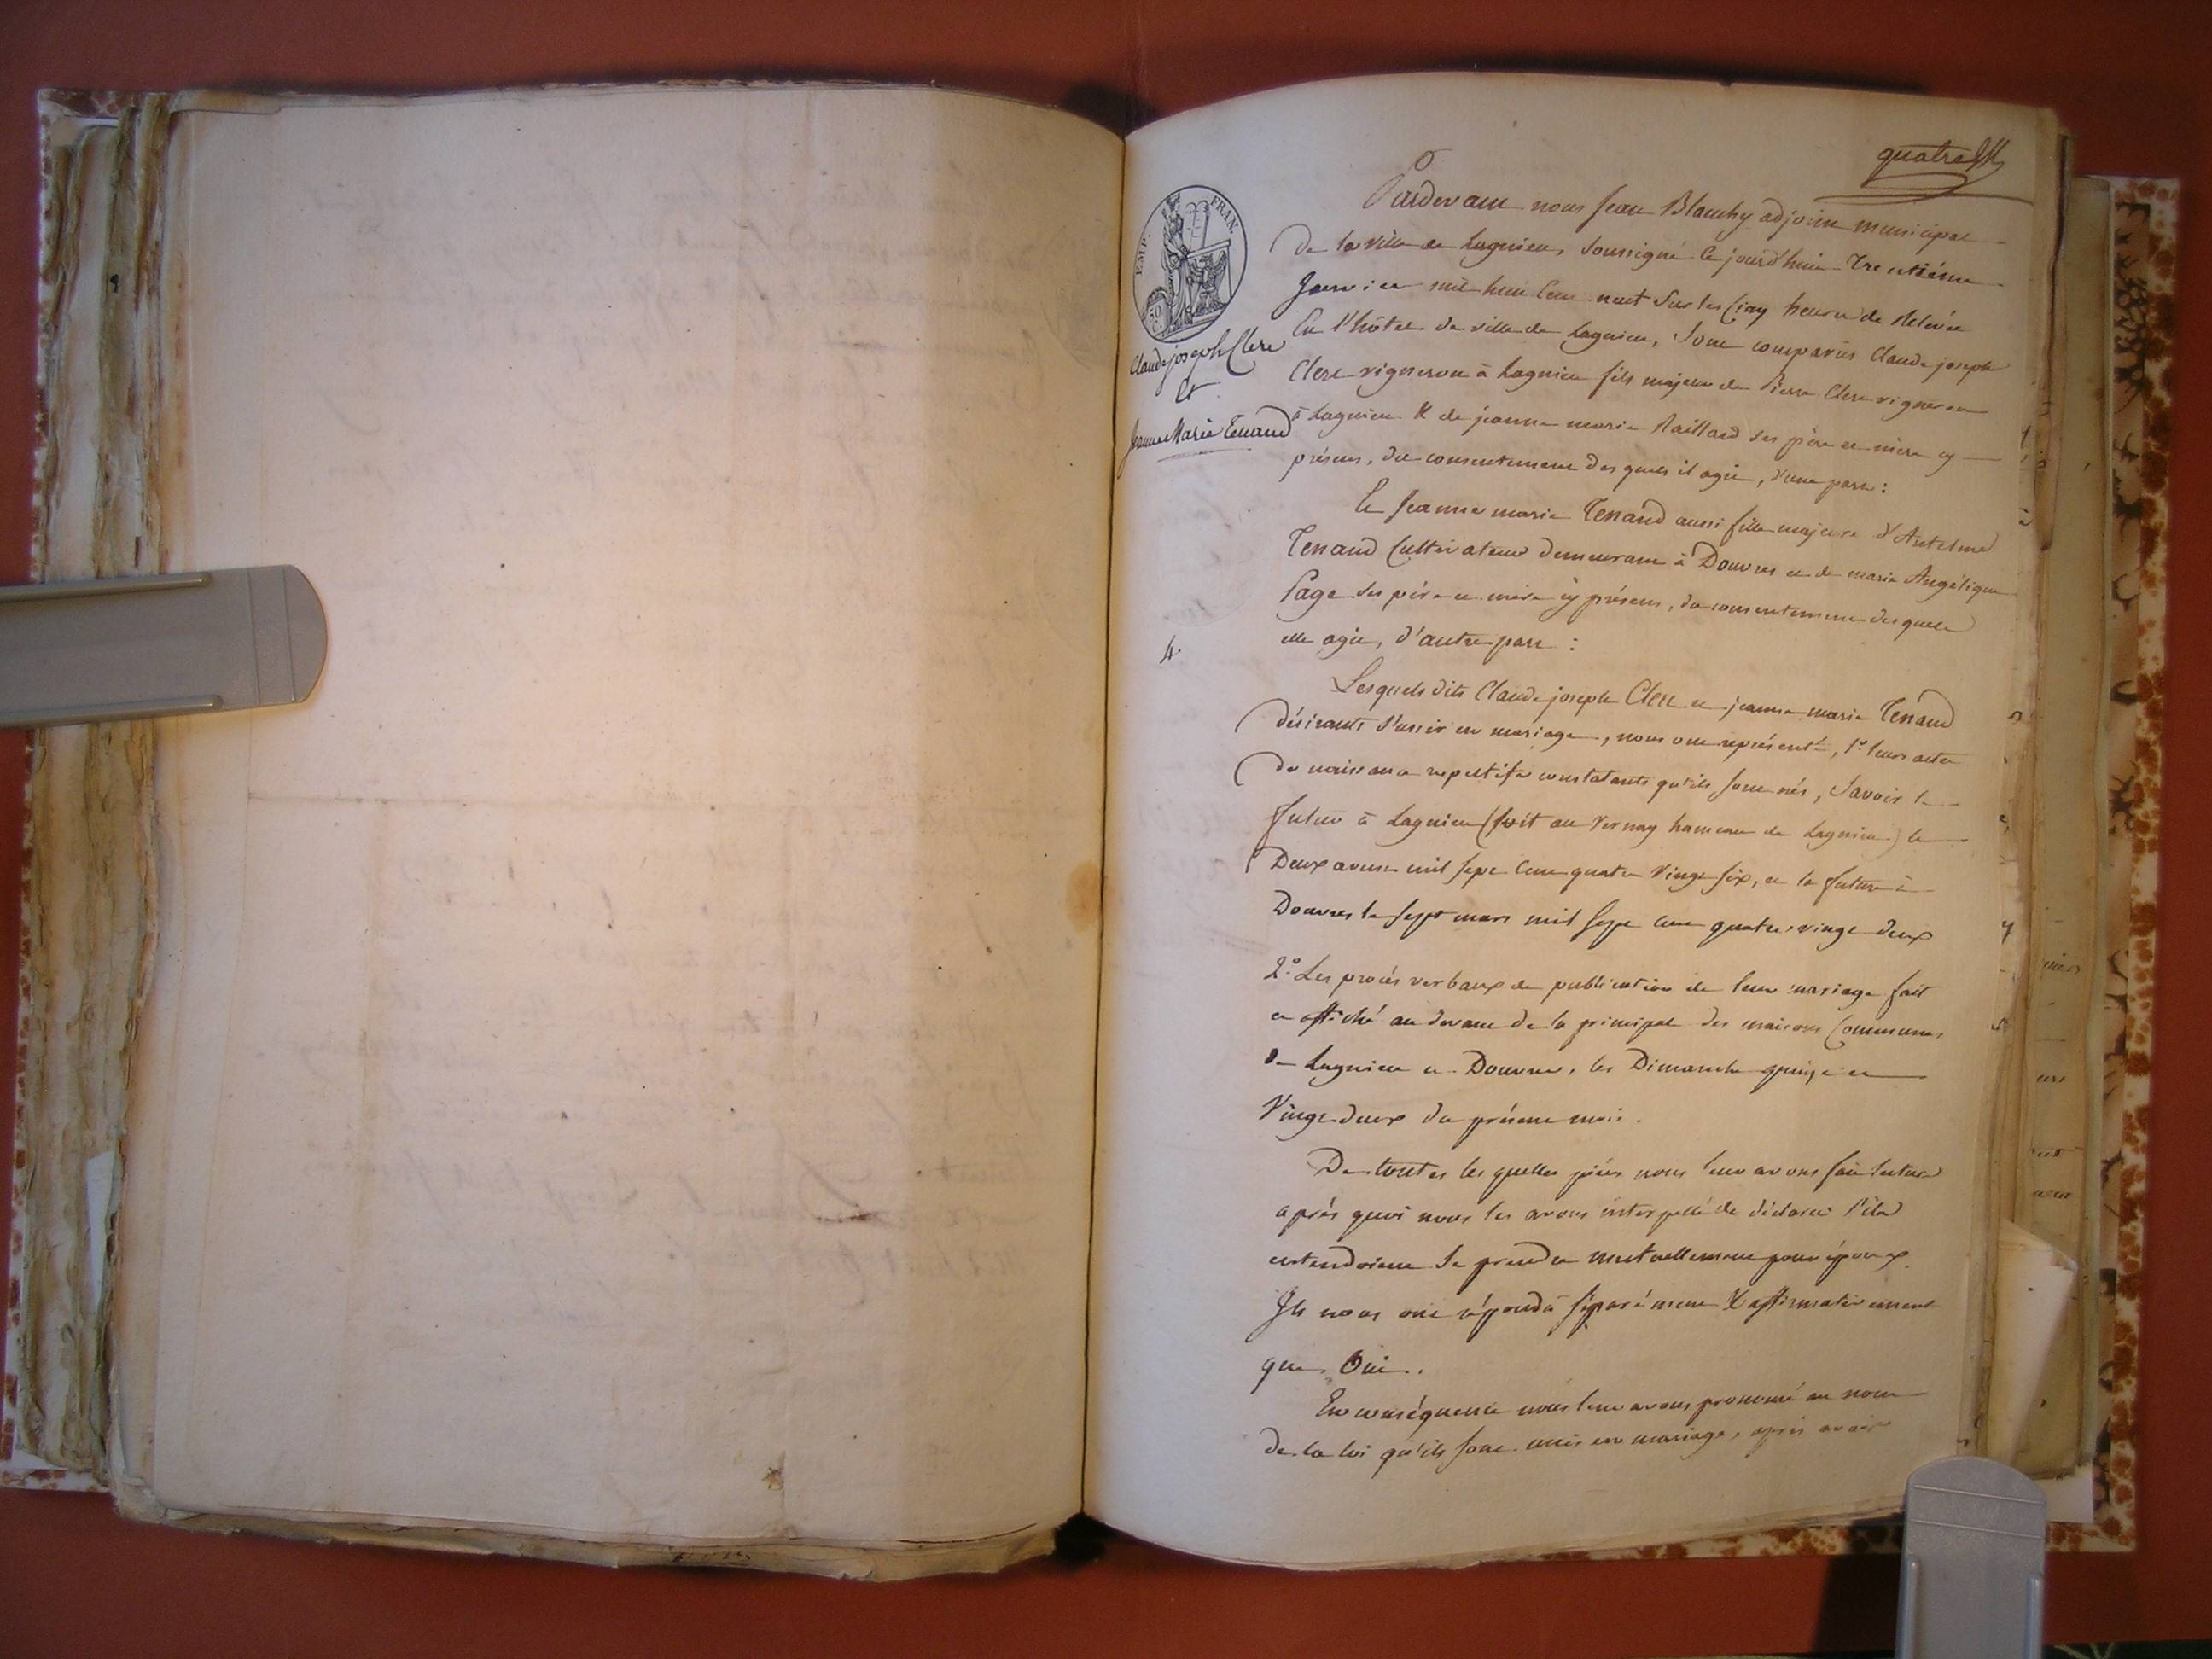 quatre
EMP. FRAN.
50 C.
Claude joseph Clerc
et
Jeanne Marie Tenand
4.
Pardevant nous Jean Blanchy adjoint municipal
de la ville de Lagnieu, soussigné ce jourd'hui trentième
Janvier mil huit cent neuf sur les cinq heures de relevée
En l'hôtel de ville de Lagnieu, sont comparus Claude joseph
Clerc vigneron à Lagnieu fils majeur de Pierre Clerc vigneron
à Lagnieu & de jeanne marie Raillard ses père et mère cy
présens, du consentement des quels il agit, d'une part :
Et Jeanne marie Tenand aussi fille majeure d'Antelme
Tenand Cultivateur demeurant à Douvres et de marie Angélique
Page ses père et mère cy présens, du consentement desquels
elle agit, d'autre part :
Lesquels dits Claude joseph Clerc et jeanne marie Tenand
désirants s'unir en mariage, nous ont représenté, 1° leurs actes
de naissance respectifs constatants qu'ils sont nés, Savoir le
futur à Lagnieu (soit au Vernay hameau de Lagnieu) le
Deux avril mil sept cent quatre vingt six, et la future à
Douvres le sept mars mil sept cent quatre-vingt deux
2° Les procès verbaux de publication de leur mariage fait
et affiché au devant de la principale des maisons Communes
de Lagnieu et Douvres, les Dimanche quinze et
Vingt deux du présent mois.
De toutes les quelles pièces nous leur avons fait lecture
après quoi nous les avons interpellé de déclarer s'ils
entendoient se prendre mutuellement pour époux
Ils nous ont répondu séparément & affirmativement
que Oui.
En conséquence nous leur avons prononcé au nom
de la loi qu'ils sont unis en mariage, après avoir